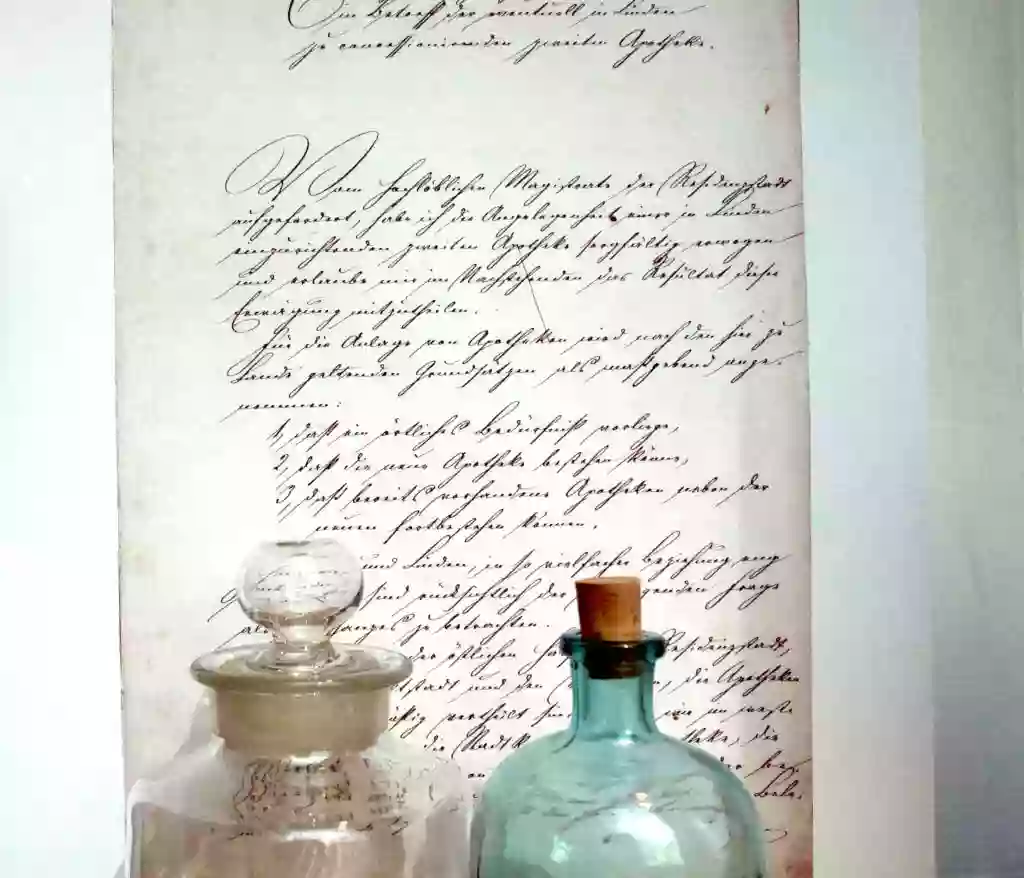 Im Betreff der eventuell in Linden
zu concessionirenden zweiten Apotheke.
Vom hochlöblichen Magistrate der Residenzstadt
aufgefordert, habe ich die Angelegenheit einer in Linden
einzurichtenden zweiten Apotheke sorgfältig erwogen
und erlaube mir im Nachstehenden das Resultat dieser
Erwägung mitzutheilen.
Für die Anlage von Apotheken wird nach den hier zu
Lande geltenden Grundsätzen als maßgebend ange-
nommen:
1, daß ein örtliches Bedürfniß vorliege,
2, daß die neue Apotheke bestehen könne,
3, daß bereits vorhandene Apotheken neben der
neuen fortbestehen können.
und Linden, in so vielfacher Beziehung eng
sind rücksichtlich der Frage
zu betrachten.
der östlichen Residenzstadt,
und den die Apotheken
vertheilt
die Stadt die